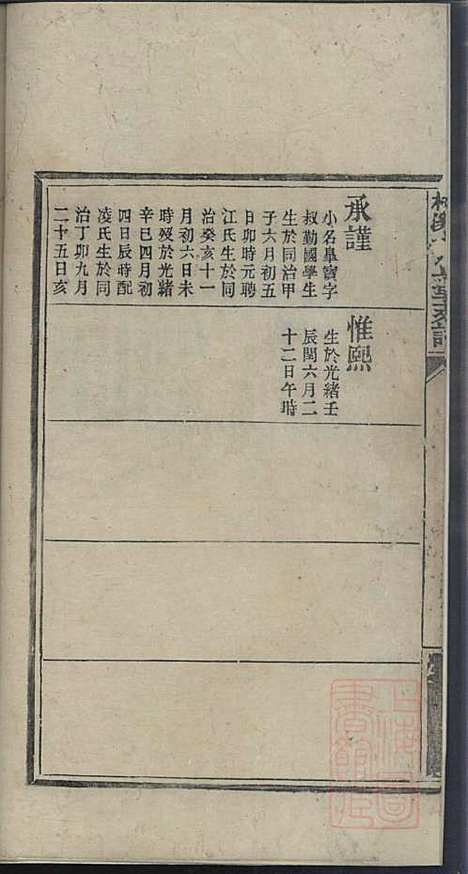 承謹
小名皐寶字
叔勤國學生
生於同治甲
子六月初五
日卯時元聘
江氏生於同
治癸亥十一
月初六日未
時歿於光緒
辛巳四月初
四日辰時配
凌氏生於同
治丁卯九月
二十五日亥
惟熙
生於光緒壬
辰閏六月二
十二日午時